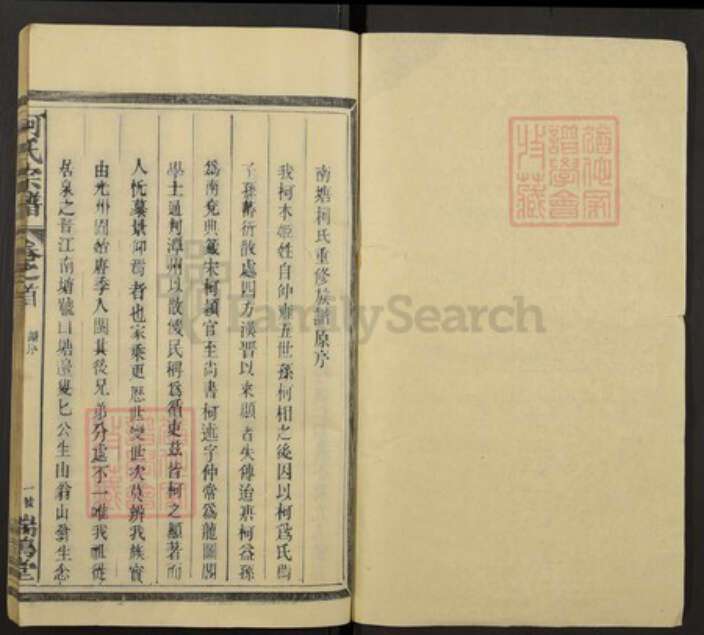 南塘柯氏重修族譜原序
我柯本姬姓自仲雍五世孫柯相之後因以柯爲氏
子孫蕃衍散處四方漢晋以來顯者失傳迨唐柯益孫
爲南兗典籤宋柯頴官至尚書柯述字仲常爲龍圖閣
學士通判漳州以散饑民稱爲循吏茲皆柯之顯著而
人忻慕景仰焉者也家乘更歷世變世次莫辨我族實
由光州固始唐季入閩其後兄弟分處不一唯我祖從
居泉之晋江南塘號曰塘邊叟七公生山翁山翁生念
柯氏宗譜
卷之首
譜序
一
瑞鵲堂
譜學會
特藏
FamilySearch